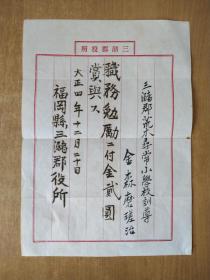 三潴郡役所
三潴郡荒木尋常小學校訓導
金森磨瑳治
職務勉勵ニ付金貳圓
賞與ス
大正四年十二月二十日
福岡縣三潴郡役所